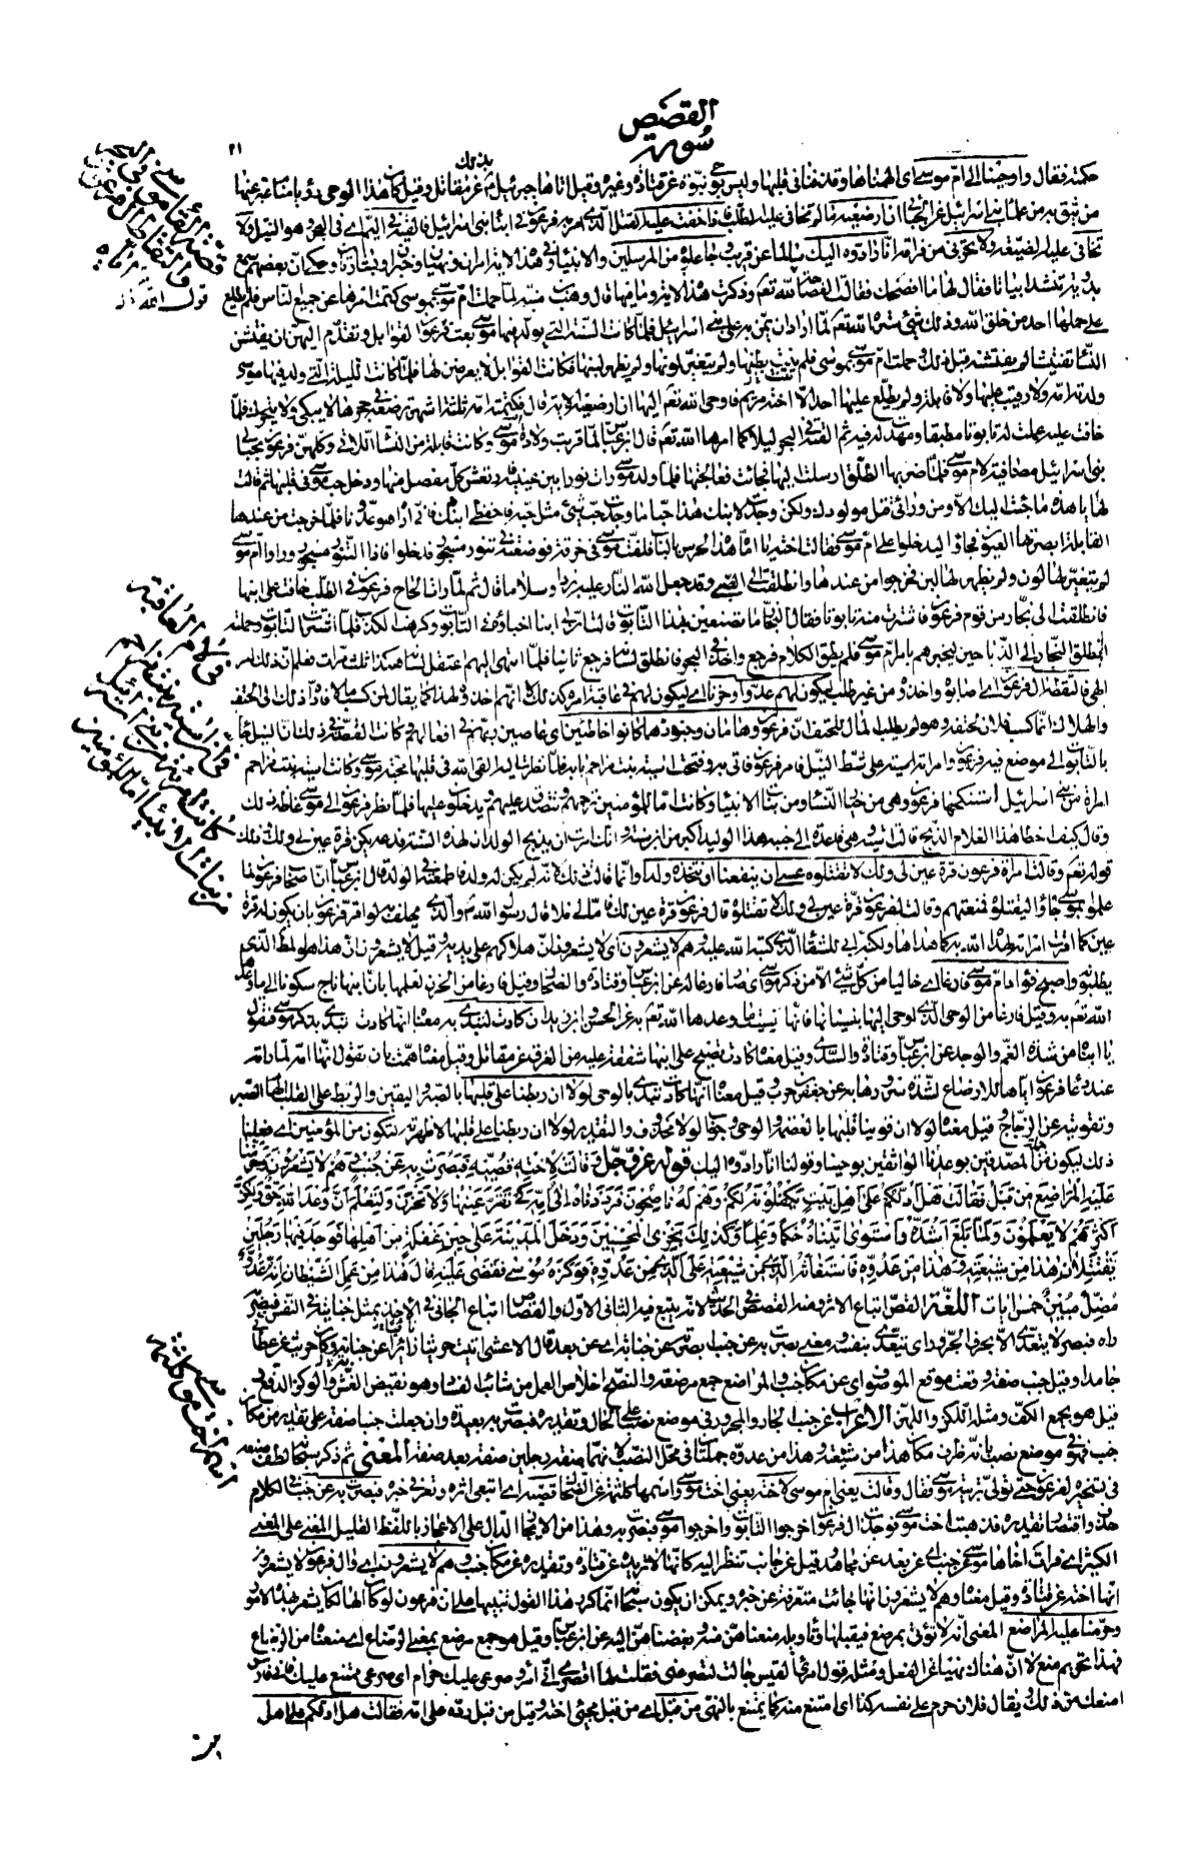 القصص
سورة
٢١
حكمته فقال واوحينا الى ام موسى اي الهمناها وقذفنا في قلبها وليس بوحي نبوة عن قتادة وغيره وقيل اتاها جبرئيل بذلك عن مقاتل وقيل كان هذا الوحي رؤيا منام عبر عنها
من يثق به من علماء بني اسرائيل عن الجبائي ان ارضعيه ما لم تخافي عليه الطلب فاذا خفت عليه القتل الذي امر به فرعون في ابناء بني اسرائيل فالقيه في اليم اي في البحر وهو النيل ولا
تخافي عليه الضيعة ولا تحزني من فراقه انا رادوه اليك سالما عن قريب وجاعلوه من المرسلين والانبياء وفي هذا الاية امران ونهيان وخبران وبشارتان وحكي ان بعضهم سمع
بدوية تنشد ابياتا فقال لها ما افصحك فقالت الفصاحة لله تعالى وذكرت هذا الاية وما فيها قال وهب بن منبه لما حملت ام موسى بموسى كتمت امرها عن جميع الناس فلم يطلع
على حملها احد من خلق الله وذلك شيء ستره الله تعالى لما اراد ان يمن به على بني اسرائيل فلما كانت السنة التي يولد فيها موسى بعث فرعون القوابل وتقدم اليهن ان يفتشن
النساء تفتيشا لم يفتشنه قبل ذلك وحملت ام موسى بموسى فلم ينتأ بطنها ولم يتغير لونها ولم يظهر لبنها فكانت القوابل لا يعرضن لها فلما كانت الليلة التي ولد فيها موسى
ولدته امه ولا رقيب عليها ولا قابلة ولم يطلع عليها احد الا اخته مريم فاوحى الله تعالى اليها ان ارضعيه الاية قال فكتمته امه ثلثة اشهر ترضعه في حجرها لا يبكي ولا يتحرك فلما
خافت عليه عملت له تابوتا مطبقا ومهدت له فيه ثم القته في البحر ليلا كما امرها الله تعالى قال ابن عباس لما قربت ولادة ام موسى وكانت قابلة من النساء اللاتي وكلهن فرعون بحبالى
بني اسرائيل مصافية لام موسى فلما ضربها الطلق ارسلت اليها فجائت فعالجتها فلما ولد موسى رات نورا بين عينيه فارتعش كل مفصل منها ودخل حب موسى في قلبها ثم قالت
لها يا هذه ما جئت اليك الا ومن ورائي قتل مولودك ولكن وجدت لابنك هذا حبا ما وجدت حب شيء مثل حبه فاحفظي ابنك فاني اراه هو عدونا فلما خرجت من عندها
القابلة ابصرتها العيون فجاؤا ليدخلوا على ام موسى فقالت اخته يا اماه هذا الحرس بالباب فلفت موسى في خرقة فوضعته في تنور مسجور فدخلوا فاذا التنور مسجور وراوا ام موسى
لم يتغير لها لون ولم يظهر لها لبن فخرجوا من عندها وانطلقت الى الصبي وقد جعل الله النار عليه بردا وسلاما قال ثم لما رات الحاح فرعون في الطلب خافت على ابنها
فانطلقت الى نجار من قوم فرعون فاشترت منه تابوتا فقال النجار ما تصنعين بهذا التابوت قالت ان لي ابنا اخباؤه في التابوت وكرهت الكذب فلما اشترت التابوت وحملته
انطلق النجار الى الذباحين ليخبرهم بامر ام موسى فلم يطق الكلام فرجع واخذ في النجر فانطلق لسانه فرجع ثانيا فلما انتهى اليهم اعتقل لسانه هكذا ثلث مرات فعلم ان ذلك امر
الهي فالتقطه ال فرعون اي اصابوه واخذوه من غير طلب ليكون لهم عدوا وحزنا اي ليكون لهم في عاقبة امره كذلك لا انهم اخذوه لهذا كما يقال لمن كسب مالا فاداه ذلك الى الحتف
والهلاك انما كسب فلان لحتفه وهو لم يطلب المال للحتف ان فرعون وهامان وجنودهما كانوا خاطئين اي عاصين ربهم في افعالهم وكانت القصة في ذلك ان النيل جاء
بالتابوت الى موضع فيه فرعون وامراته اسية على شط النيل فامر فرعون فاتي به وفتحت اسية بنت مزاحم بابه فلما نظرت اليه القى الله في قلبها محبة موسى وكانت اسية بنت مزاحم
امراة من بني اسرائيل استنكحها فرعون وهي من خيار النساء ومن بنات الانبياء وكانت اما للمؤمنين ترحمهم وتتصدق عليهم ويدخلون عليها فلما نظر فرعون الى موسى غاظه ذلك
وقال كيف اخطا هذا الغلام الذبح قالت اسية وهي قاعدة الى جنبه هذا الوليد اكبر من ابن سنة وانك امرت ان يذبح الولدان لهذه السنة فدعه يكن قرة عين لي ولك وذلك
قوله تعالى وقالت امراة فرعون قرة عين لي ولك لا تقتلوه عسى ان ينفعنا او نتخذه ولدا وانما قالت ذلك لانه لم يكن له ولد فاطمعته في الولد قال ابن عباس ان اصحاب فرعون لما
علموا بموسى جاؤا ليقتلوه فمنعتهم وقالت لفرعون قرة عين لي ولك لا تقتلوه قال فرعون قرة عين لك فاما لي فلا قال رسول الله والذي يحلف به لو اقر فرعون بان يكون له قرة
عين كما اقرت امراته لهداه الله به كما هداها ولكنه ابى للشقاء الذي كتبه الله عليه وهم لا يشعرون اي لا يشعرون ان هلاكهم على يديه وقيل لا يشعرون ان هذا هو المطلوب الذي
يطلبونه واصبح فؤاد ام موسى فارغا اي خاليا من كل شيء الا من ذكر موسى اي صار فارغا له عن ابن عباس وقتادة والضحاك وقيل فارغا من الحزن لعلمها بان ابنها ناج سكونا الى ما وعدها
الله تعالى به وقيل فارغا من الوحي الذي اوحي اليها بنسيانها فانها نسيت ما وعدها الله تعالى به عن الحسن وابن زيد ان كادت لتبدي به معناه انها كادت تبدي بذكر موسى فتقول
يا ابناه من شدة الغم والوجد عن ابن عباس وقتادة والسدي وقيل معناه كادت تصيح على ابنها شفقة عليه من الغرق عن مقاتل وقيل معناه همت بان تقول انها امه لما راته
عند دعاء فرعون اياها للارضاع لشدة سرورها به عن جعفر بن حرب وقيل معناه انها كادت تبدي بالوحي لولا ان ربطنا على قلبها بالصبر واليقين والربط على القلب الهام الصبر
وتقويته عن الزجاج وقيل معناه لولا ان قوينا قلبها بالعصمة والوحي وجواب لولا محذوف والتقدير لولا ان ربطنا على قلبها لاظهرته لتكون من المؤمنين اي فعلنا
ذلك ليكون من المصدقين بوعدنا الواثقين بوحينا وقولنا انا رادوه اليك قوله عز وجل وقالت لاخته قصيه فبصرت به عن جنب وهم لا يشعرون وحرمنا
عليه المراضع من قبل فقالت هل ادلكم على اهل بيت يكفلونه لكم وهم له ناصحون فرددناه الى امه كي تقر عينها ولا تحزن ولتعلم ان وعد الله حق ولكن
اكثرهم لا يعلمون ولما بلغ اشده واستوى اتيناه حكما وعلما وكذلك نجزي المحسنين ودخل المدينة على حين غفلة من اهلها فوجد فيها رجلين
يقتتلان هذا من شيعته وهذا من عدوه فاستغاثه الذي من شيعته على الذي من عدوه فوكزه موسى فقضى عليه قال هذا من عمل الشيطان انه عدو
مضل مبين خمس ايات اللغة القص اتباع الاثر ومنه القصص في الحديث لانه يتبع فيه الثاني الاول والقصاص اتباع الجاني في الاخذ بمثل جنايته في النفس فبصر به
راه فبصر لا يتعدى الا بحرف الجر وراى يتعدى بنفسه ومعنى بصرت به عن جنب ابصرته عن جنابة اي عن بعد قال الاعشى اتيت حريثا زائرا عن جنابة وكان حريث عن عطائي
جامدا وقيل جنب صفة وقعت موقع الموصوف اي عن مكان جنب والمراضع جمع مرضعة والنصح اخلاص العمل من شائب الفساد وهو نقيض الغش والوكز الدفع
قيل هو بجمع الكف ومثله اللكز واللهز الاعراب عن جنب الجار والمجرور في موضع نصب على الحال وتقديره فبصرت به بعيدة وان جعلت جنبا صفة على تقدير من مكان
جنب فهو في موضع نصب بانه ظرف مكان هذا من شيعته وهذا من عدوه جملتان في محل النصب لانهما صفة رجلين صفة بعد صفة المعنى ثم ذكر سبحانه لطف صنعه
في تسخيره لفرعون حتى تولى تربية موسى فقال وقالت يعني ام موسى لاخته يعني اخت موسى واسمها كلثمة عن الضحاك قصيه اي اتبعي اثره وتعرفي خبره فبصرت به عن جنب الكلام
حذف واقتصار تقديره فذهبت اخت موسى فوجدت ال فرعون اخرجوا التابوت واخرجوا موسى فبصرت به وهذا من الايجاز الدال على الاعجاز باللفظ القليل المغني على المعنى
الكثير اي فرات اخاها موسى عن جنب اي عن بعد عن مجاهد وقيل عن جانب تنظر اليه كانها لا تريده عن قتادة وتقديره عن مكان جنب وهم لا يشعرون اي وال فرعون لا يشعرون
انها اخته عن قتادة وقيل معناه وهم لا يشعرون انها جائت متعرفة عن خبره ويمكن ان يكون سبحانه انما كرر هذا القول تنبيها على ان فرعون لو كان الها لكان يشعر بهذه الامور
وحرمنا عليه المراضع المعنى انه لا تؤتى بمرضع فيقبلها وتاويله منعناهن منه وبغضناهن اليه عن ابن عباس وقيل هو جمع مرضع بمعنى الرضاع اي منعناه من الرضاع
فهذا تحريم منع لا ان هناك نهيا عن الفعل ومثله قول امرئ القيس جالت لتصرعني فقلت لها اقصري اني امرؤ صرعي عليك حرام اي صرعي ممتنع عليك فاني فارس
امنعك من ذلك ويقال فلان حرم على نفسه كذا اي امتنع منه كما يمتنع بالنهي من قبل اي من قبل مجيئ اخته وقيل من قبل رده على امه فقالت هل ادلكم على اهل